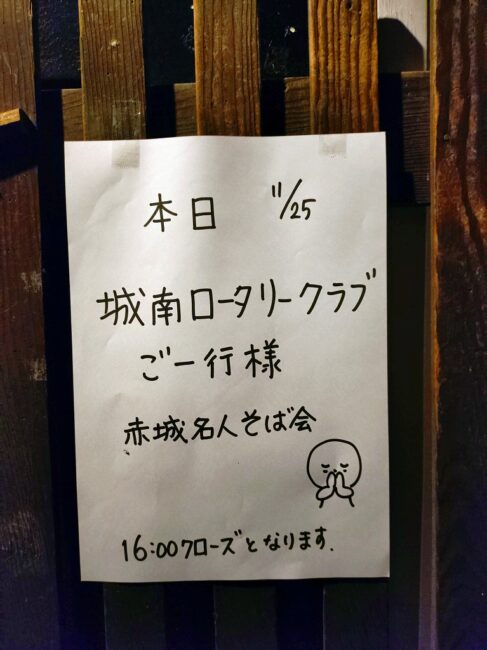 本日 11/25
城南ロータリークラブ
ご一行様
赤城名人そば会
16:00クローズとなります.